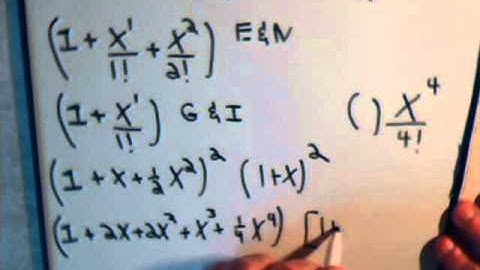 (1 + x¹/1! + x²/2!) E & N
(1 + x¹/1!) G & I
( ) x⁴/4!
(1 + x + ½x²)² (1+x)²
(1 + 2x + 2x² + x³ + ¼x⁴) [1